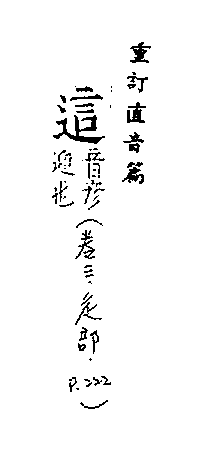 重訂直音篇
這音彥迎也(卷三.辵部.P.222)